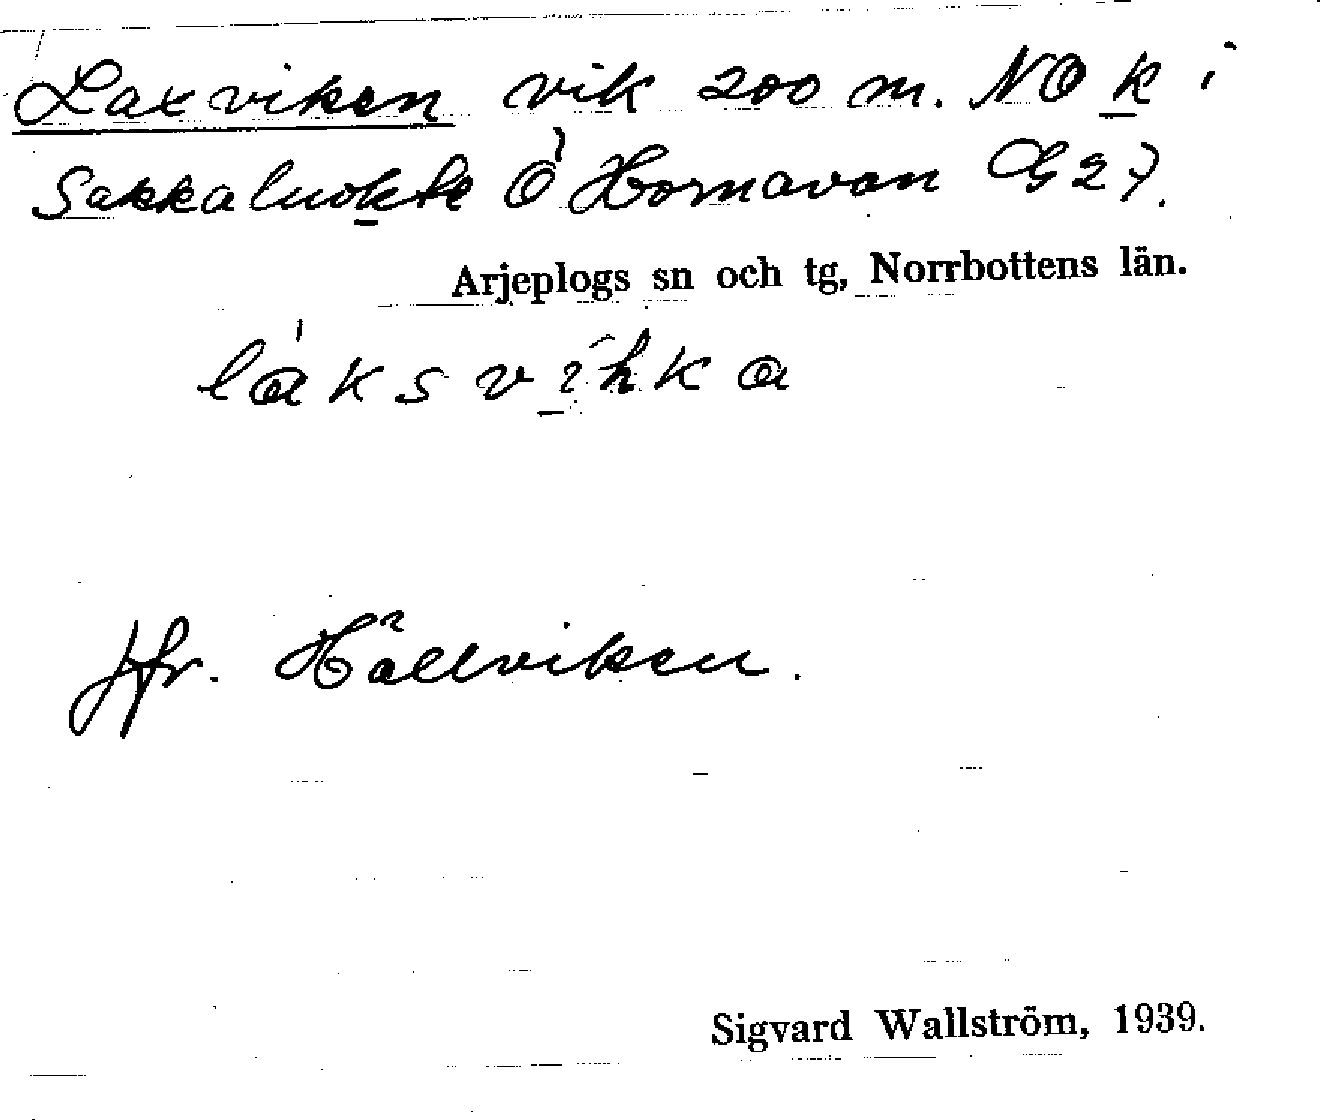 Laxviken vik 200 m. NO k i
Sakkaluokte Ö Hornavan G27.
Arjeplogs sn och tg, Norrbottens län.
láksvihka
Jfr. Hällviken.
Sigvard Wallström, 1939.